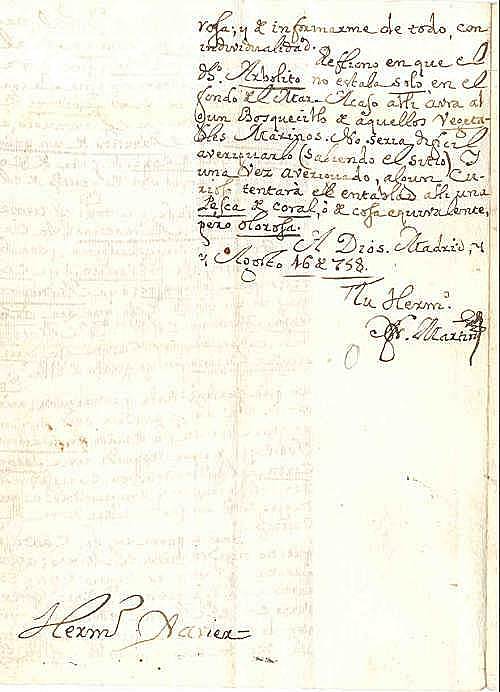 rosa; y de informarme de todo, con
individualidad.
Reflexiono en que el
dho. Arbolito no estaba solo en el
fondo del Mar. Acaso alli avra al
gun Bosquecillo de aquellos Vegeta-
bles Marinos. No seria dificil
averiguarlo (sabiendo el sitio) Y
una vez averiguado, algun Cu-
rioso tentarà el entablar alli una
Pesca de coral, ò de cosa equivalente,
pero olorosa.
A Dios. Madrid, y
y Agosto 16 de 758.
Tu Hermo.
Fr. Martin
Hermo. Xavier